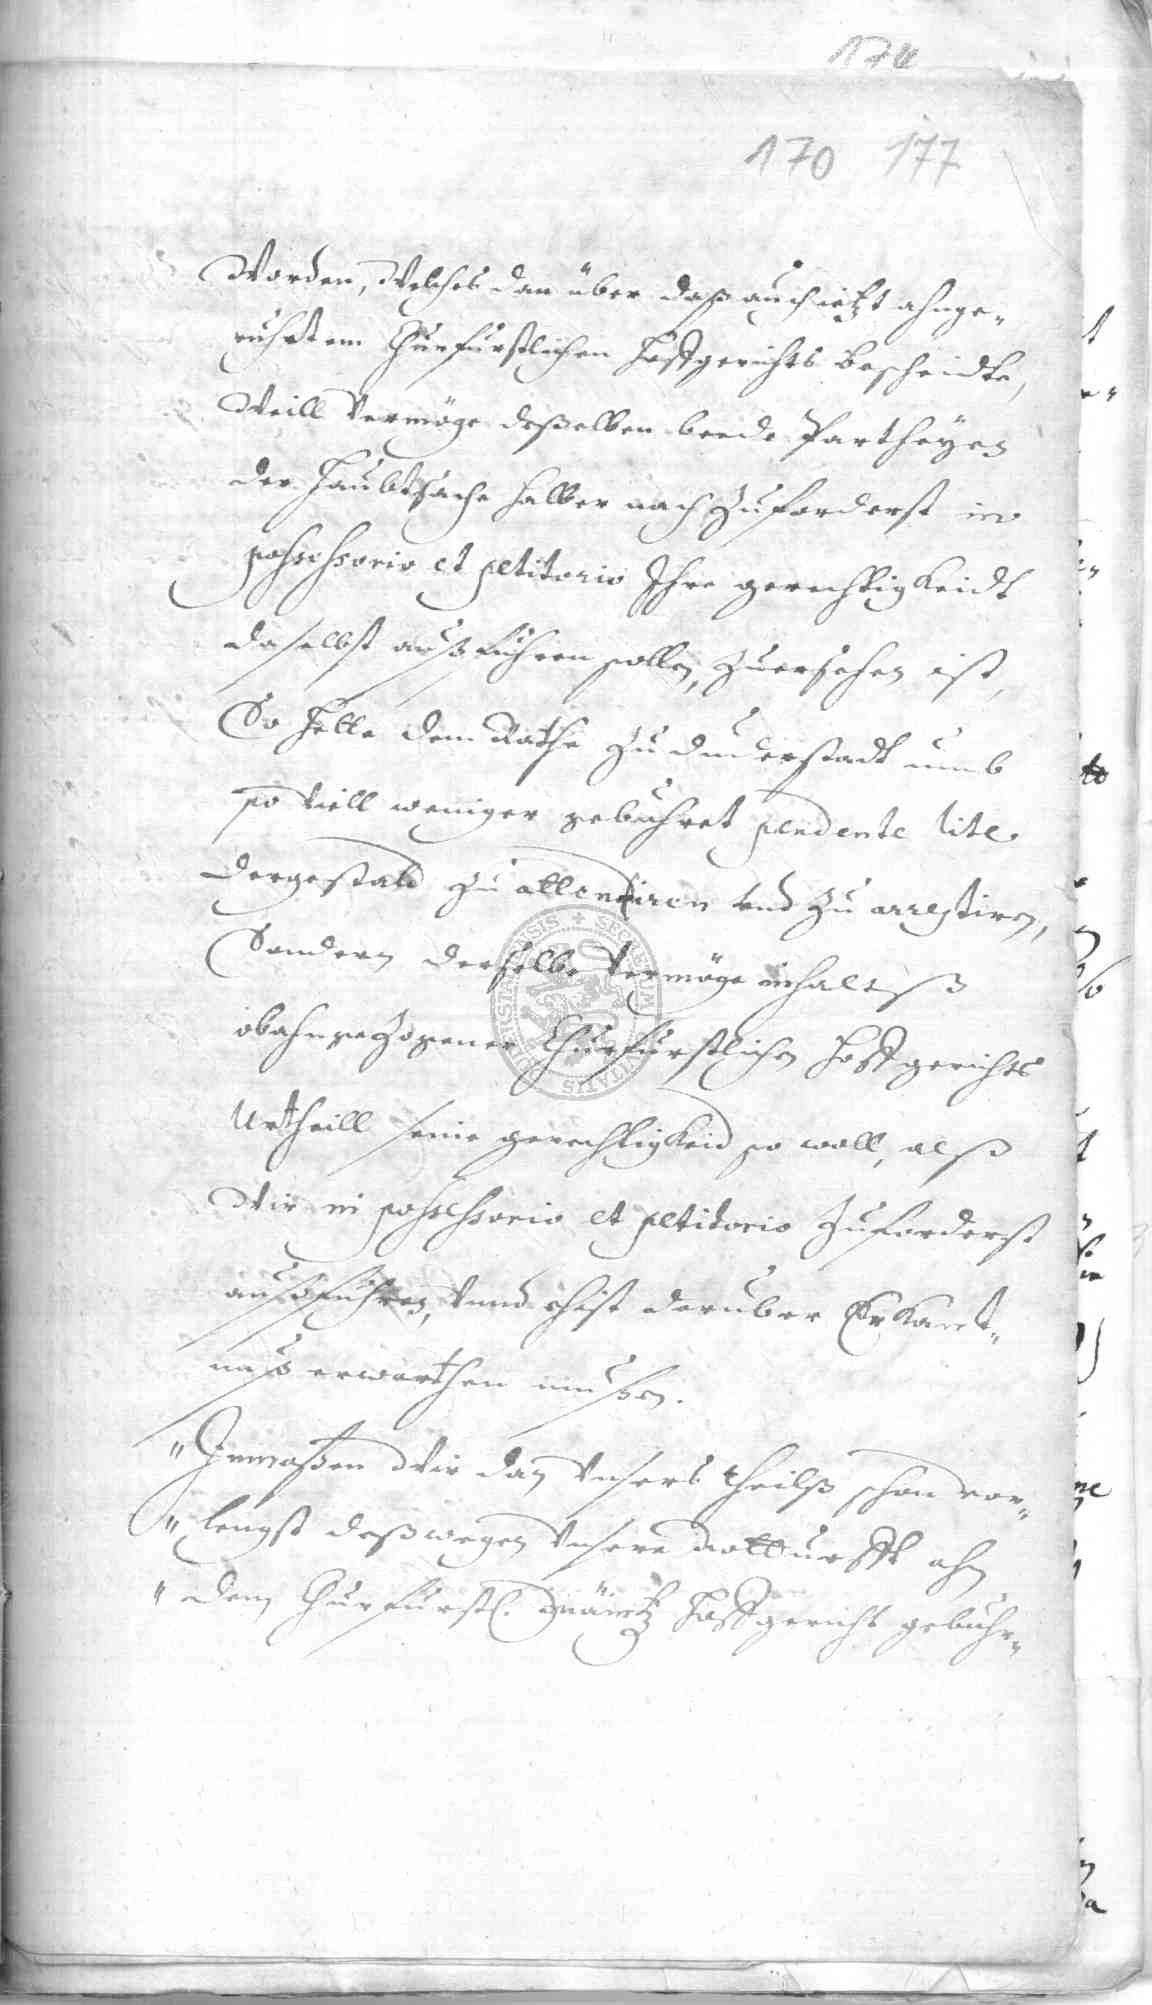 174
170 177
Worden, Welches dan über daß auch ietzt ahnge-
ruhrtem Churfürstlichen Hoffgerichts Bescheidte,
Weill Vermöge deßelben beede Partheyen
der Haubtsache halber nach Zuforderst in
possessorio et petitorio Ihre gerechtigkeidt
daselbst außführen sollen, Zuersehen ist,
So hette dem Rathe Zu duderstadt umb
so Viell weniger gebuhret pendente lite
dergestald zu attentiren und zu arrestiren,
Sondern derselbe Vermöge inhaltß
obahngezogener Churfürstlichen Hoffgerichts
Urtheill seine gerechtigkeid so woll, alß
Wir in possessorio et petitorio Zuforderst
außführen, Vnnd erst daruber Erkant-
nuß erwarthen mußen.
" Inmaßen Wir dan Vnsers theilß schon vor-
" lengst deßwegen Vnsere notturfft ahn
" dem Churfürstl. Mäintz Hoffgericht gebuhr-